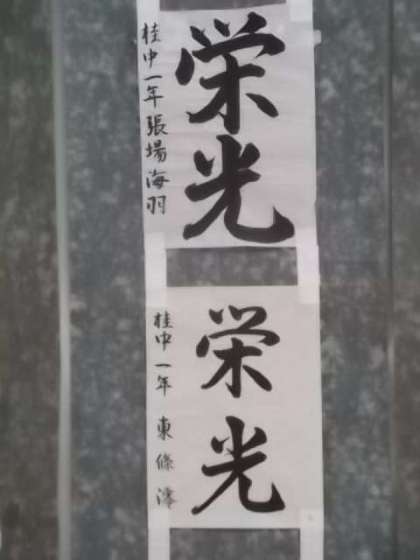 栄光
桂中一年張場海羽
栄光
桂中一年 東條澪